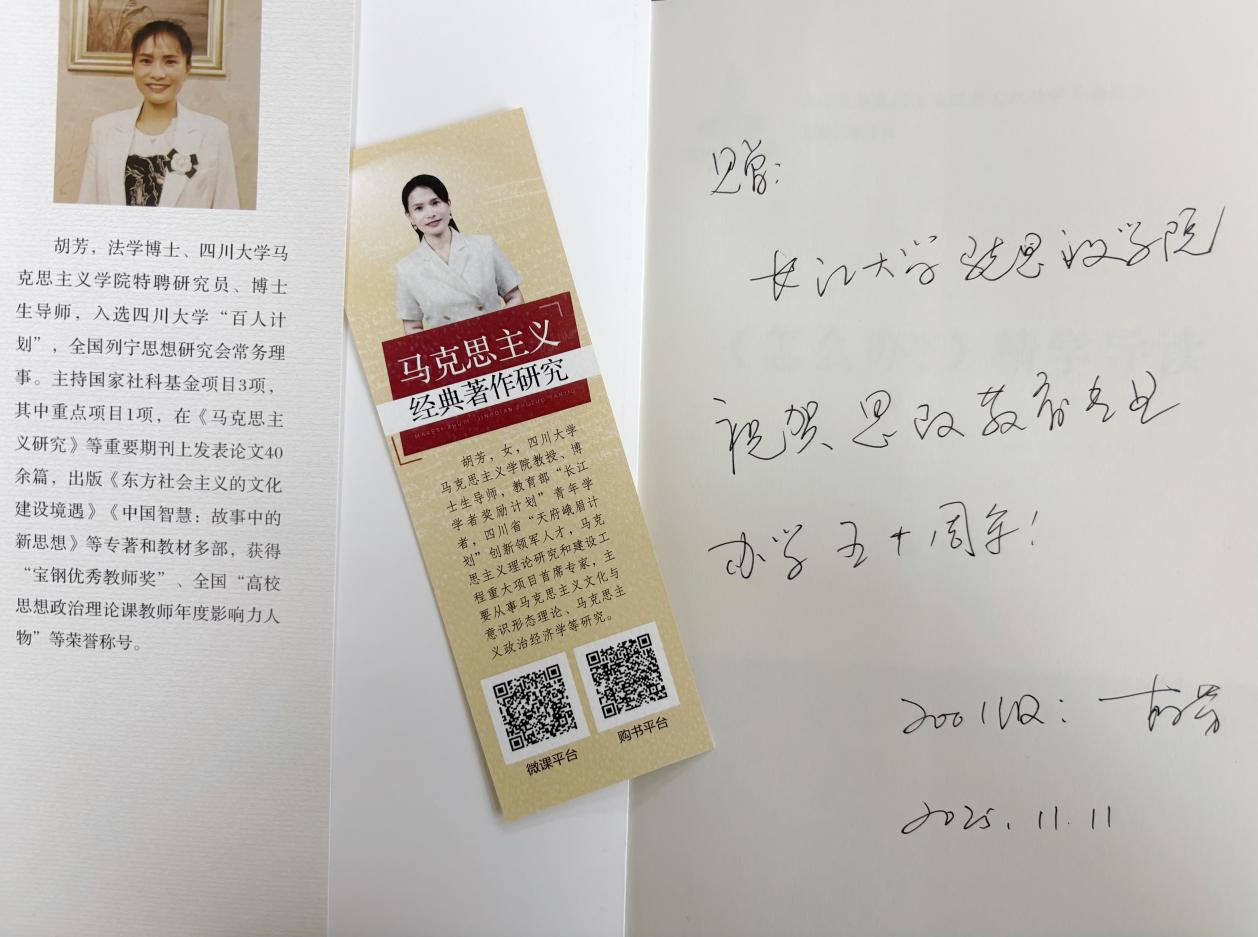 胡芳，法学博士、四川大学马
克思主义学院特聘研究员、博士
生导师，入选四川大学“百人计
划”，全国列宁思想研究会常务理
事。主持国家社科基金项目3项，
其中重点项目1项，在《马克思主
义研究》等重要期刊上发表论文40
余篇，出版《东方社会主义的文化
建设境遇》《中国智慧：故事中的
新思想》等专著和教材多部，获得
“宝钢优秀教师奖”、全国“高校
思想政治理论课教师年度影响力人
物”等荣誉称号。
马克思主义
经典著作研究
胡芳，女，四川大学
马克思主义学院教授、博
士生导师，教育部“长江
学者奖励计划”青年学
者，四川省“天府峨眉计
划”创新领军人才，马克
思主义理论研究和建设工
程重大项目首席专家，主
要从事马克思主义文化与
意识形态理论、马克思主
义政治经济学等研究。
微课平台
购书平台
长江大学 学院
祝贺思政教育专业
办学五十周年！
2001级：胡芳
2025.11.11